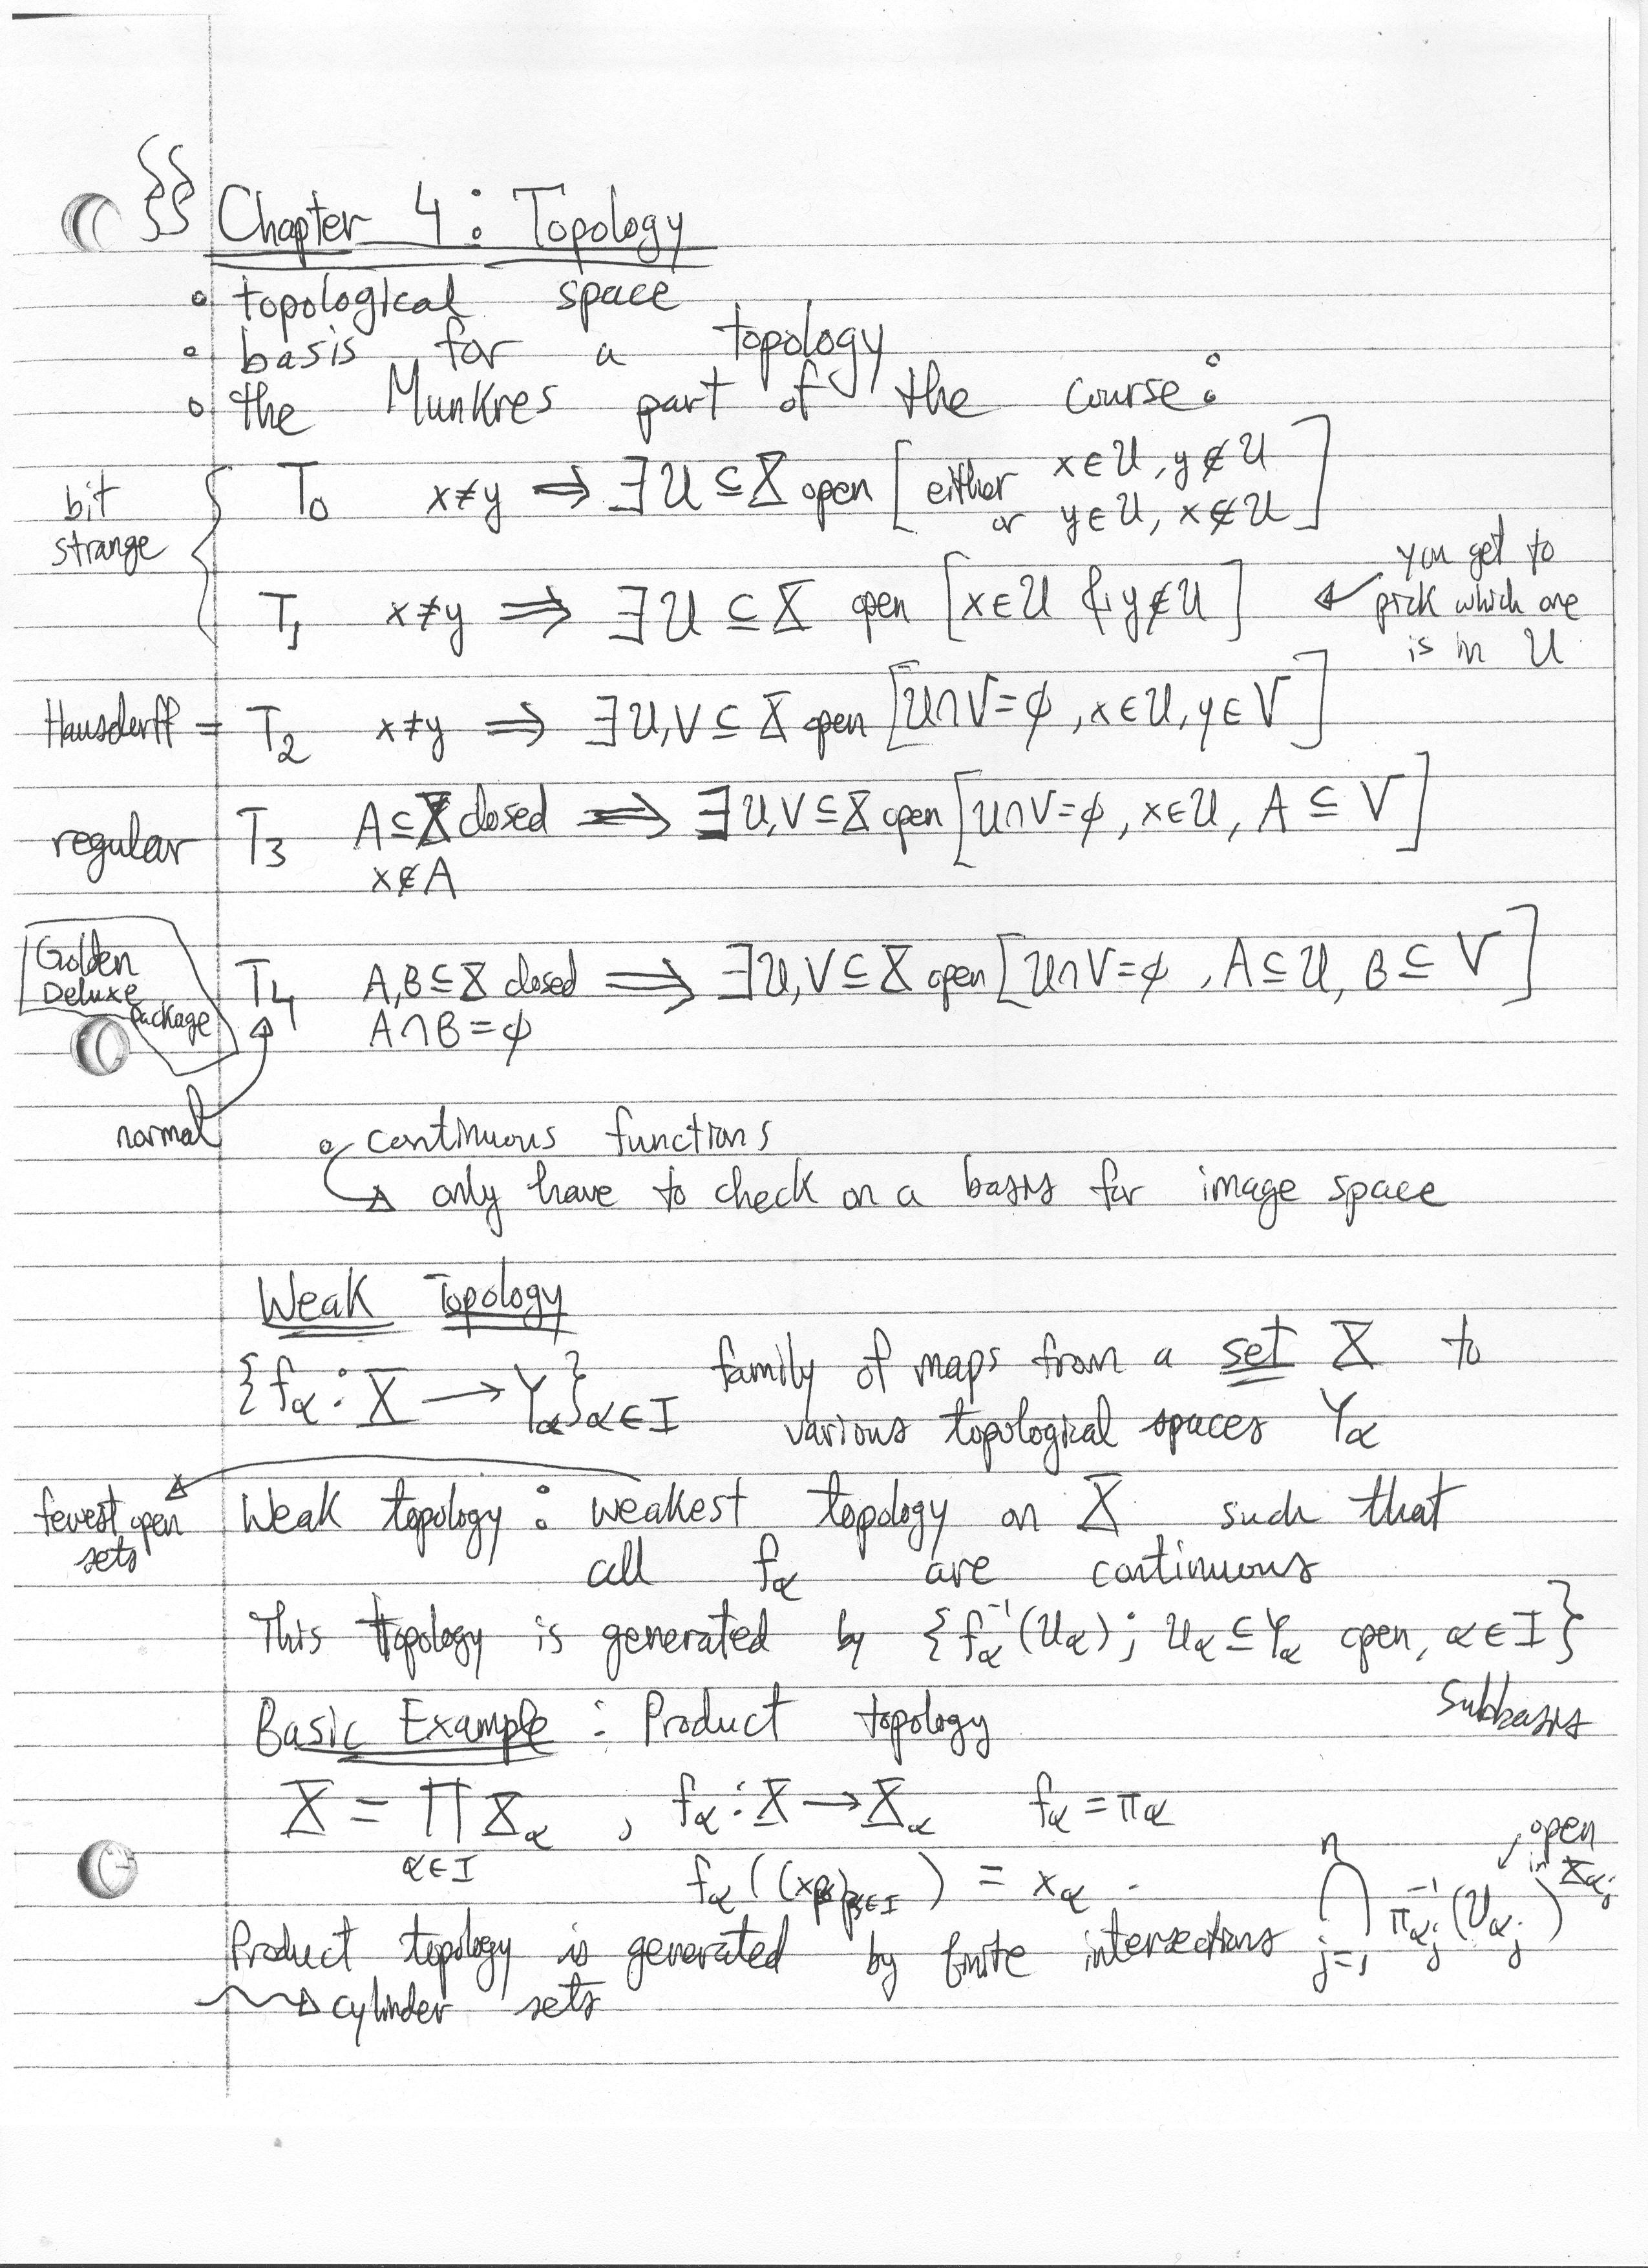 §§ Chapter 4: Topology
∘ topological space
∘ basis for a topology
∘ the Munkres part of the course:
bit strange { T₀ x≠y ⟹ ∃ U ⊆ X open [either x∈U, y∉U
or y∈U, x∉U]
T₁ x≠y ⟹ ∃ U ⊆ X open [x∈U & y∉U] ← you get to pick which one is in U
Hausdorff = T₂ x≠y ⟹ ∃ U,V ⊆ X open [U∩V=∅, x∈U, y∈V]
regular T₃ A⊆X closed ⟹ ∃ U,V⊆X open [U∩V=∅, x∈U, A⊆V]
x∉A
Golden Deluxe Package T₄ A,B⊆X closed ⟹ ∃ U,V⊆X open [U∩V=∅, A⊆U, B⊆V]
A∩B=∅
normal
∘ continuous functions
↳ only have to check on a basis for image space
Weak Topology
{fα : X → Yα}α∈I family of maps from a set X to
various topological spaces Yα
fewest open sets
Weak topology: weakest topology on X such that
all fα are continuous
This topology is generated by {fα⁻¹(Uα); Uα⊆Yα open, α∈I}
subbasis
Basic Example: Product topology
X = ∏α∈I Xα , fα : X → Xα fα = πα
fα((xβ)β∈I) = xα.
Product topology is generated by finite intersections ⋂ⁿj=1 παj⁻¹(Uαj) open in Xαj
⇝ cylinder sets